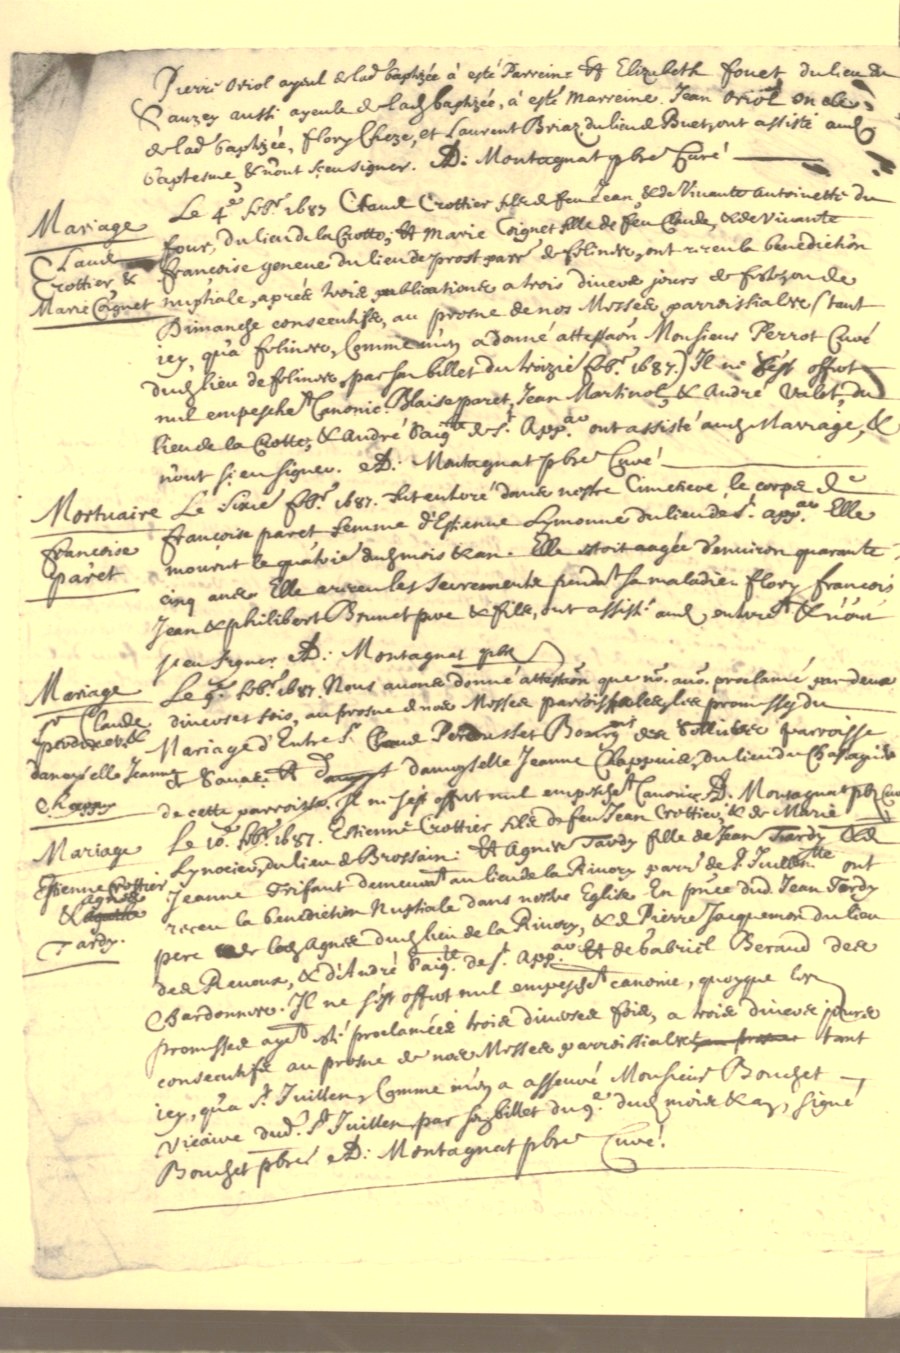 Pierre Oriol ayeul de lad baptizée à esté Parrein: Et Elizabeth fouet du lieu du
Sauzey aussi ayeule de lad baptizée, à esté Marreine. Jean Oriol oncle
de lad baptizée, flory Cheze, et Laurent Briaz du lieu de Buet, ont assisté aud
baptesme, & n'ont sceu signer. AD: Montagnat pbre Curé
Mariage
Claud
Crottier, &
Marie Coignet
Le 4e febr. 1687 Claude Crottier fils de feu Jean, & de Vivante Antoinette du
four, du lieu de la Crotte, Et Marie Coignet fille de feu Claude, & de Vivante
francoise geneve du lieu de prost parr de felines, ont receu la benediction
nuptiale, aprés trois publications a trois divers jours de feste ou de
Dimanche consecutifs, au prosne de nos Messes parroissiales (tant
icy, qu'a felines, Comme m'en a donné attestaon Monsieur Perrot Curé
dud lieu de felines, par son billet du troizie febr. 1687.) Il ne s'est offert
nul empeschet Canonic. Blaise paret, Jean Martinol, & André Valet, du
lieu de la Crotte, & André Saigte de St. App.au ont assisté aud Mariage, &
n'ont sceu signer. AD: Montagnat pbre Curé
Mortuaire
francoise
paret
Le Sixie febr. 1687. fut enterré dans nostre Cimetiere, le corps de
francoise paret femme d'Estienne Lymonne du lieu de St. App.au Elle
mourut le quatrie dud mois & an. Elle estoit aagée d'environ quarante
cinq ans. Elle a receu les Sacrements pendat sa maladie. flory francois
Jean & philibert Brunet pere & fils, ont assisté aud enterret & n'ont
sceu signer. AD: Montagnat pbre
Mariage
Sr Claude
perdusset &
damoyselle Jeanne
Chappuy
Le 9e febr. 1687. Nous avons donné attestaon que n. avo. proclamé par deux
diverses fois, au prosne de nos Messes parroissiales, les promesses du
Mariage d'Entre Sr. Claud Perdusset Bourgois des Sellieres parroisse
de Savas. Et damoyselle Jeanne Chappuis, du lieu du Chatagnier
de cette parroisse. Il ne s'est offert nul empeschet Canonic. AD. Montagnat pbre Curé
Mariage
Estienne Crottier
Agnes
&
Tardy.
Le 10. febr. 1687. Estienne Crottier fils de feu Jean Crottier, & de Marie
Lynossier, du lieu de Brossain: Et Agnes Tardy fille de Jean Tardy & de
Jeanne Trifant demeurat au lieu de la Rivory parr. de St. Juillen ont
receu la benediction Nuptiale dans nostre Eglise En pnce dud. Jean Tardy
pere de lad Agnes dud lieu de la Rivory, & de Pierre Jacquemon du lieu
des Renoux, & d'André Saigte. de St. App.au Et de Gabriel Beraud des
Chardonnes. Il ne s'est offert nul empeschet canonic, quoyque les
promesses ayet esté proclamées trois diverses fois, a trois divers jours
consecutifs au prosne de nos Messes parroissiales tant
icy, qu'a St. Juillen, Comme m'en a asseuré Monsieur Bouchet
Vicaire dud. St Juillen par son billet du 9e. dud mois & an, signé
Bouchet pbre AD: Montagnat pbre Curé.